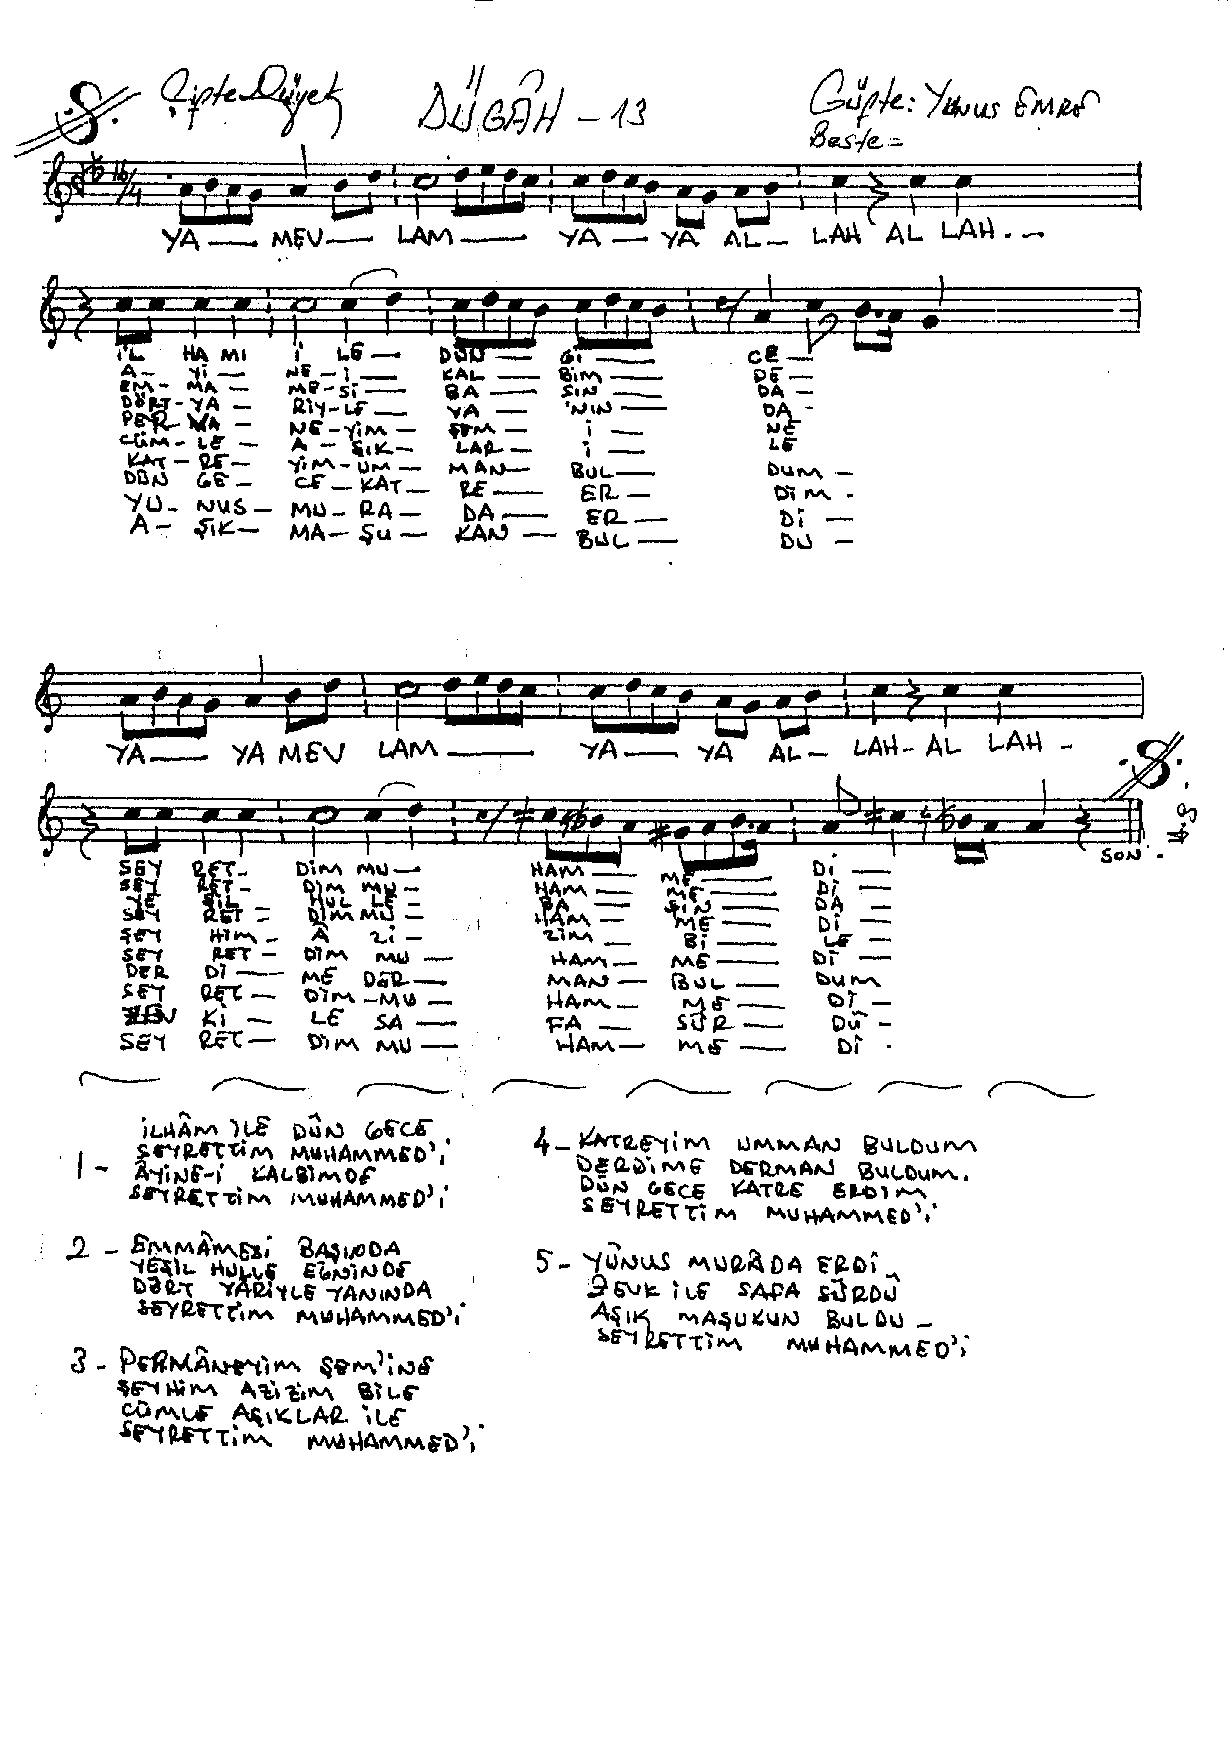 Çifte Düyek
DÜGÂH - 13
Güfte: YUNUS EMRE
Beste =
16/4
YA — MEV — LAM — YA — YA AL — LAH AL LAH. —
İL HA MI İ LE — DÜN — Gİ — CE —
A - Yİ — NE - İ — KAL — BİM — DE —
EM - MA — ME - Sİ — BA — SIN — DA —
DÖRT - YA — RİY - LE — YA — 'NIN — DA -
PER - VA — NE - YİM — ŞEM — İ — NE
CÜM - LE — A - ŞIK — LAR — İ — LE
KAT - RE — YİM - UM — MAN — BUL — DUM —
DÜN GE — CE - KAT — RE — ER — DİM -
YU - NUS — MU - RA — DA — ER — Dİ —
A - ŞIK — MA - ŞU — KAN — BUL — DU —
YA — YA MEV LAM — YA — YA AL — LAH - AL LAH -
SON
SEY RET - DİM MU — HAM — ME — Dİ —
SEY RET - DİM MU — HAM — ME — Dİ —
YE ŞİL - HUL LE — BA — ŞIN — DA —
SEY RET - DİM MU — HAM — ME — Dİ —
ŞEY HİM - Â Zİ - ZİM — Bİ — LE —
SEY RET - DİM MU — HAM — ME — Dİ —
DER Dİ — ME DER — MAN — BUL — DUM
SEY RET — DİM - MU — HAM — ME — Dİ -
ZEV Kİ — LE SA — FA — SÜR — DÛ -
SEY RET — DİM MU — HAM — ME — Dİ -
İLHÂM İLE DÜN GECE
SEYRETTİM MUHAMMED'İ
1 - ÂYİNE-İ KALBİMDE
SEYRETTİM MUHAMMED'İ
2 - EMMÂMESİ BAŞINDA
YEŞİL HULLE EĞNİNDE
DÖRT YARİYLE YANINDA
SEYRETTİM MUHAMMED'İ
3 - PERMÂNEYİM ŞEM'İNE
ŞEYHİM AZİZİM BİLE
CÜMLE AŞIKLAR İLE
SEYRETTİM MUHAMMED'İ
4 - KATREYİM UMMAN BULDUM
DERDİME DERMAN BULDUM.
DÜN GECE KATRE ERDİM
SEYRETTİM MUHAMMED'İ
5 - YÛNUS MURÂDA ERDİ
ZEVK İLE SAFA SÜRDÜ
AŞIK MAŞUKUN BULDU -
SEYRETTİM MUHAMMED'İ